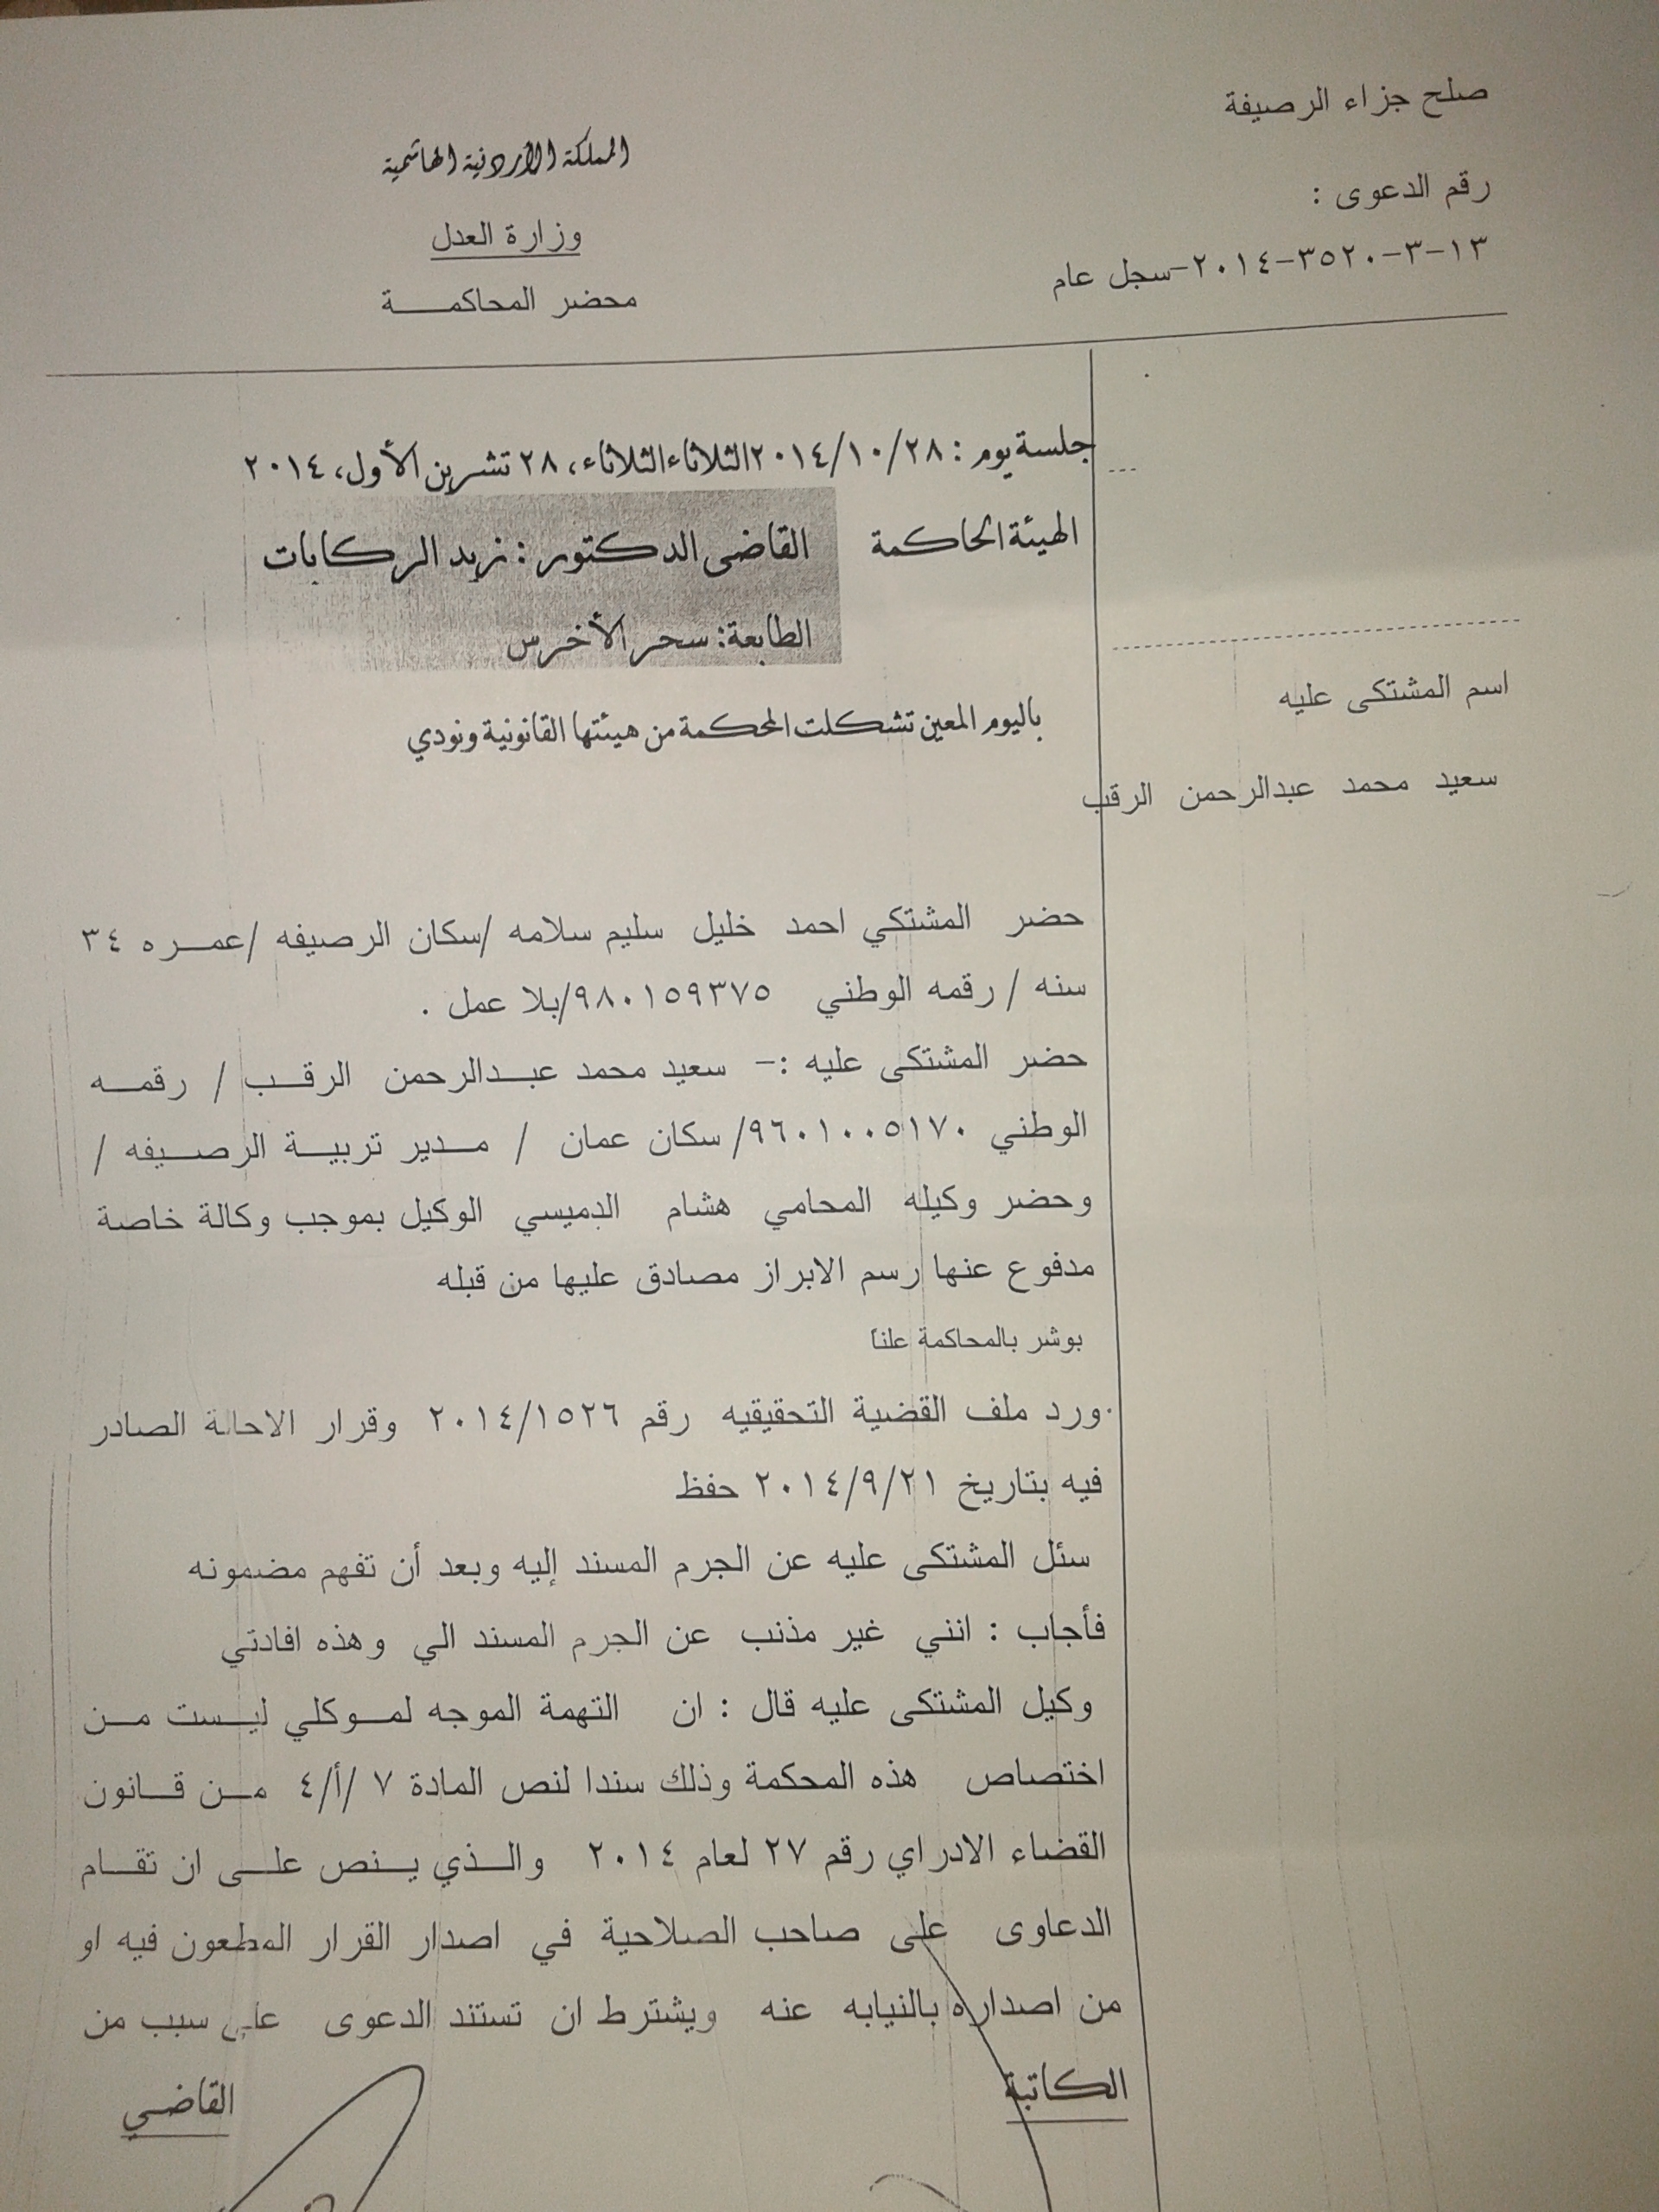 صلح جزاء الرصيفة
المملكة الأردنية الهاشمية
رقم الدعوى :
وزارة العدل
١٣-٣-٣٥٢٠-٢٠١٤-سجل عام
محضر المحاكمـــــة
جلسة يوم : ٢٠١٤/١٠/٢٨الثلاثاءالثلاثاء، ٢٨ تشرين الأول، ٢٠١٤
الهيئة الحاكمة القاضي الدكتور : زيد الركابات
الطابعة: سحر الأخرس
اسم المشتكى عليه
باليوم المعين تشكلت المحكمة من هيئتها القانونية ونودي
سعيد محمد عبدالرحمن الرقب
حضر المشتكي احمد خليل سليم سلامه /سكان الرصيفه /عمــره ٣٤
سنه / رقمه الوطني ٩٨٠١٥٩٣٧٥/بلا عمل .
حضر المشتكى عليه :- سعيد محمد عبــدالرحمن الرقــب / رقمــه
الوطني ٩٦٠١٠٠٥١٧٠/ سكان عمان / مــدير تربيــة الرصــيفه /
وحضر وكيله المحامي هشام الدميسي الوكيل بموجب وكالة خاصة
مدفوع عنها رسم الابراز مصادق عليها من قبله
بوشر بالمحاكمة علناً
.ورد ملف القضية التحقيقيه رقم ٢٠١٤/١٥٢٦ وقرار الاحالة الصادر
فيه بتاريخ ٢٠١٤/٩/٢١ حفظ
سئل المشتكى عليه عن الجرم المسند إليه وبعد أن تفهم مضمونه
فأجاب : انني غير مذنب عن الجرم المسند الي وهذه افادتي
وكيل المشتكى عليه قال : ان التهمة الموجه لمــوكلي ليــست مــن
اختصاص هذه المحكمة وذلك سندا لنص المادة ٧ /أ/٤ مــن قــانون
القضاء الادراي رقم ٢٧ لعام ٢٠١٤ والــذي يــنص علــى ان تقــام
الدعاوى على صاحب الصلاحية في اصدار القرار المطعون فيه او
من اصداره بالنيابه عنه ويشترط ان تستند الدعوى على سبب من
الكاتبة
القاضي